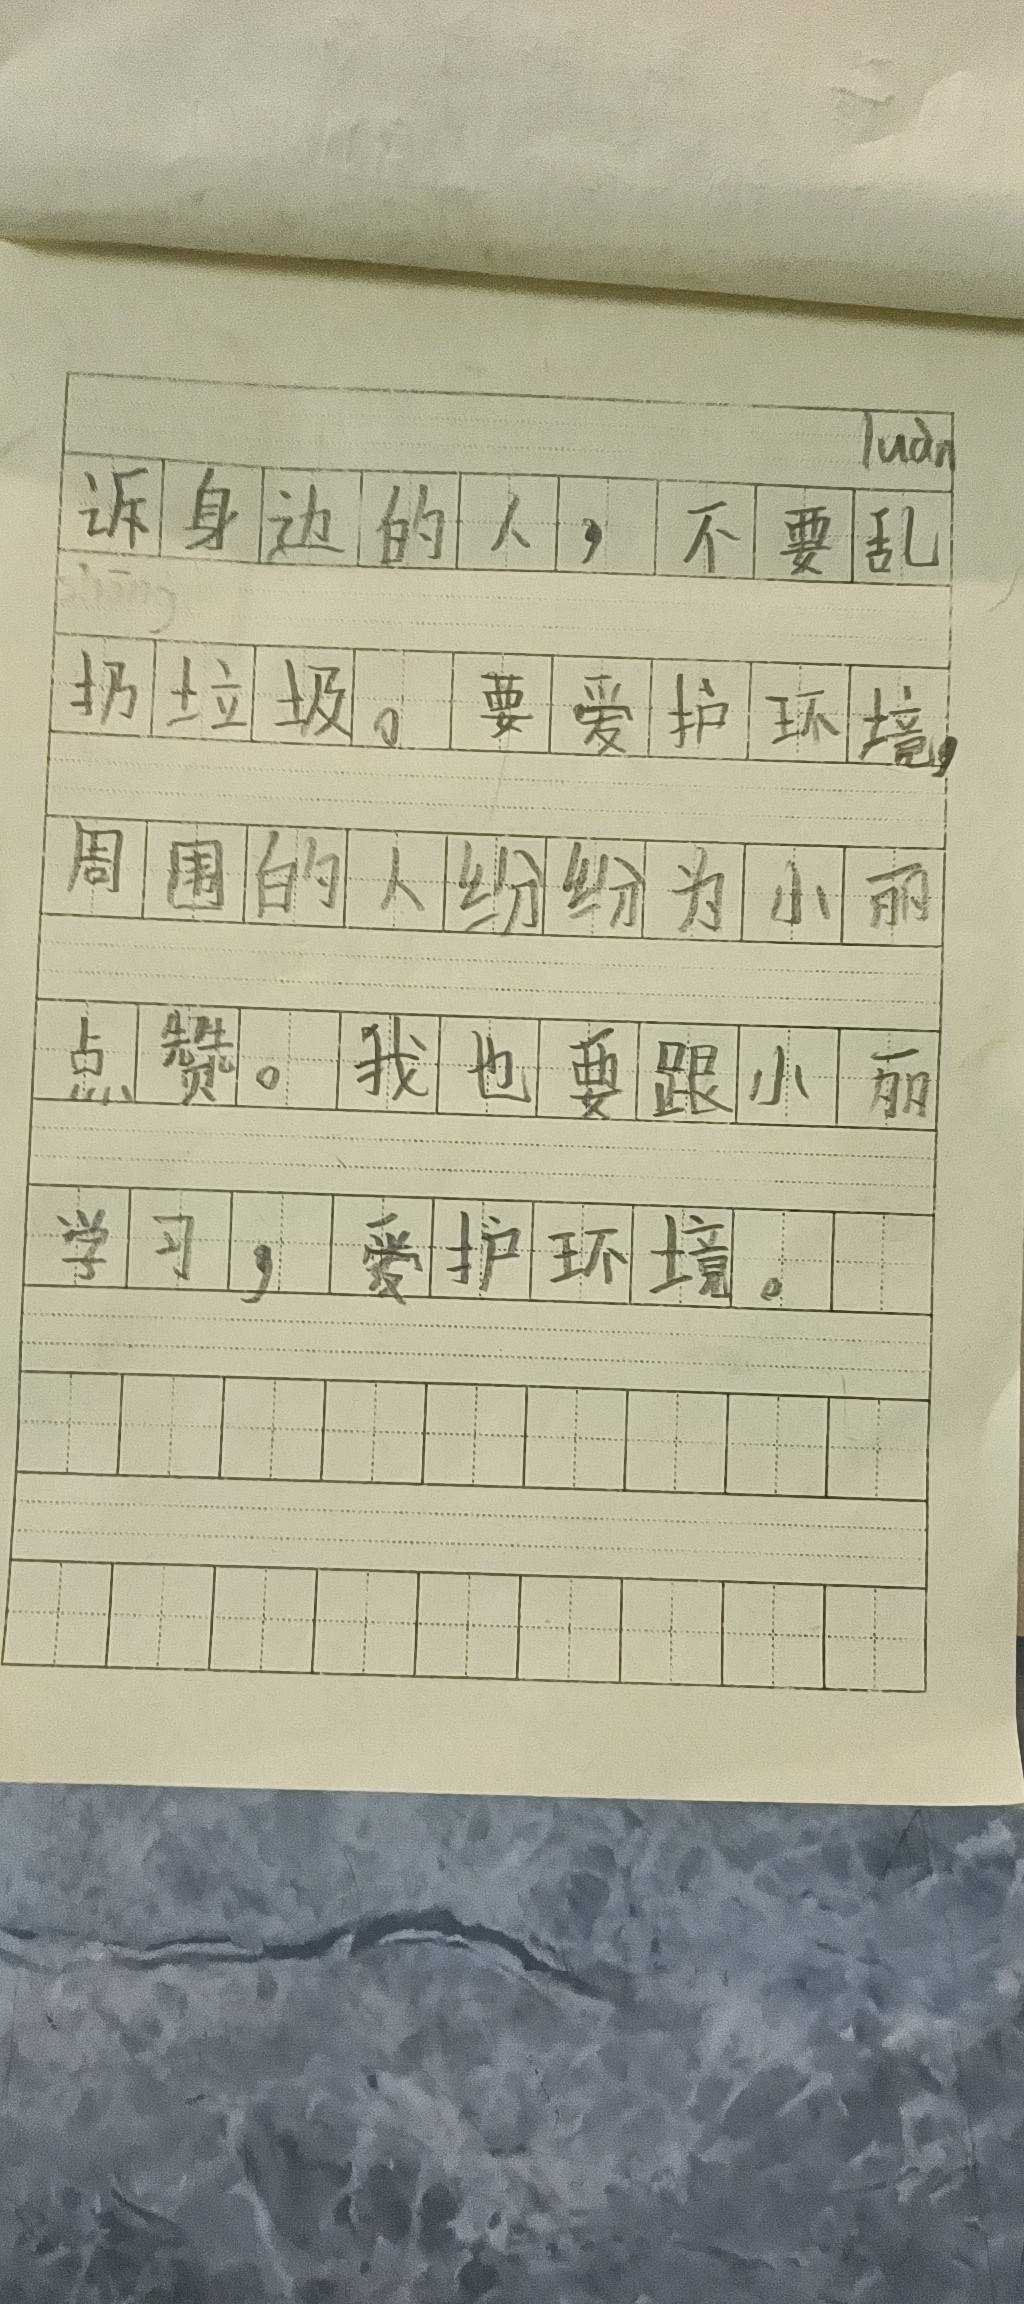 luàn
诉身边的人，不要乱
扔垃圾。要爱护环境，
周围的人纷纷为小丽
点赞。我也要跟小丽
学习，爱护环境。